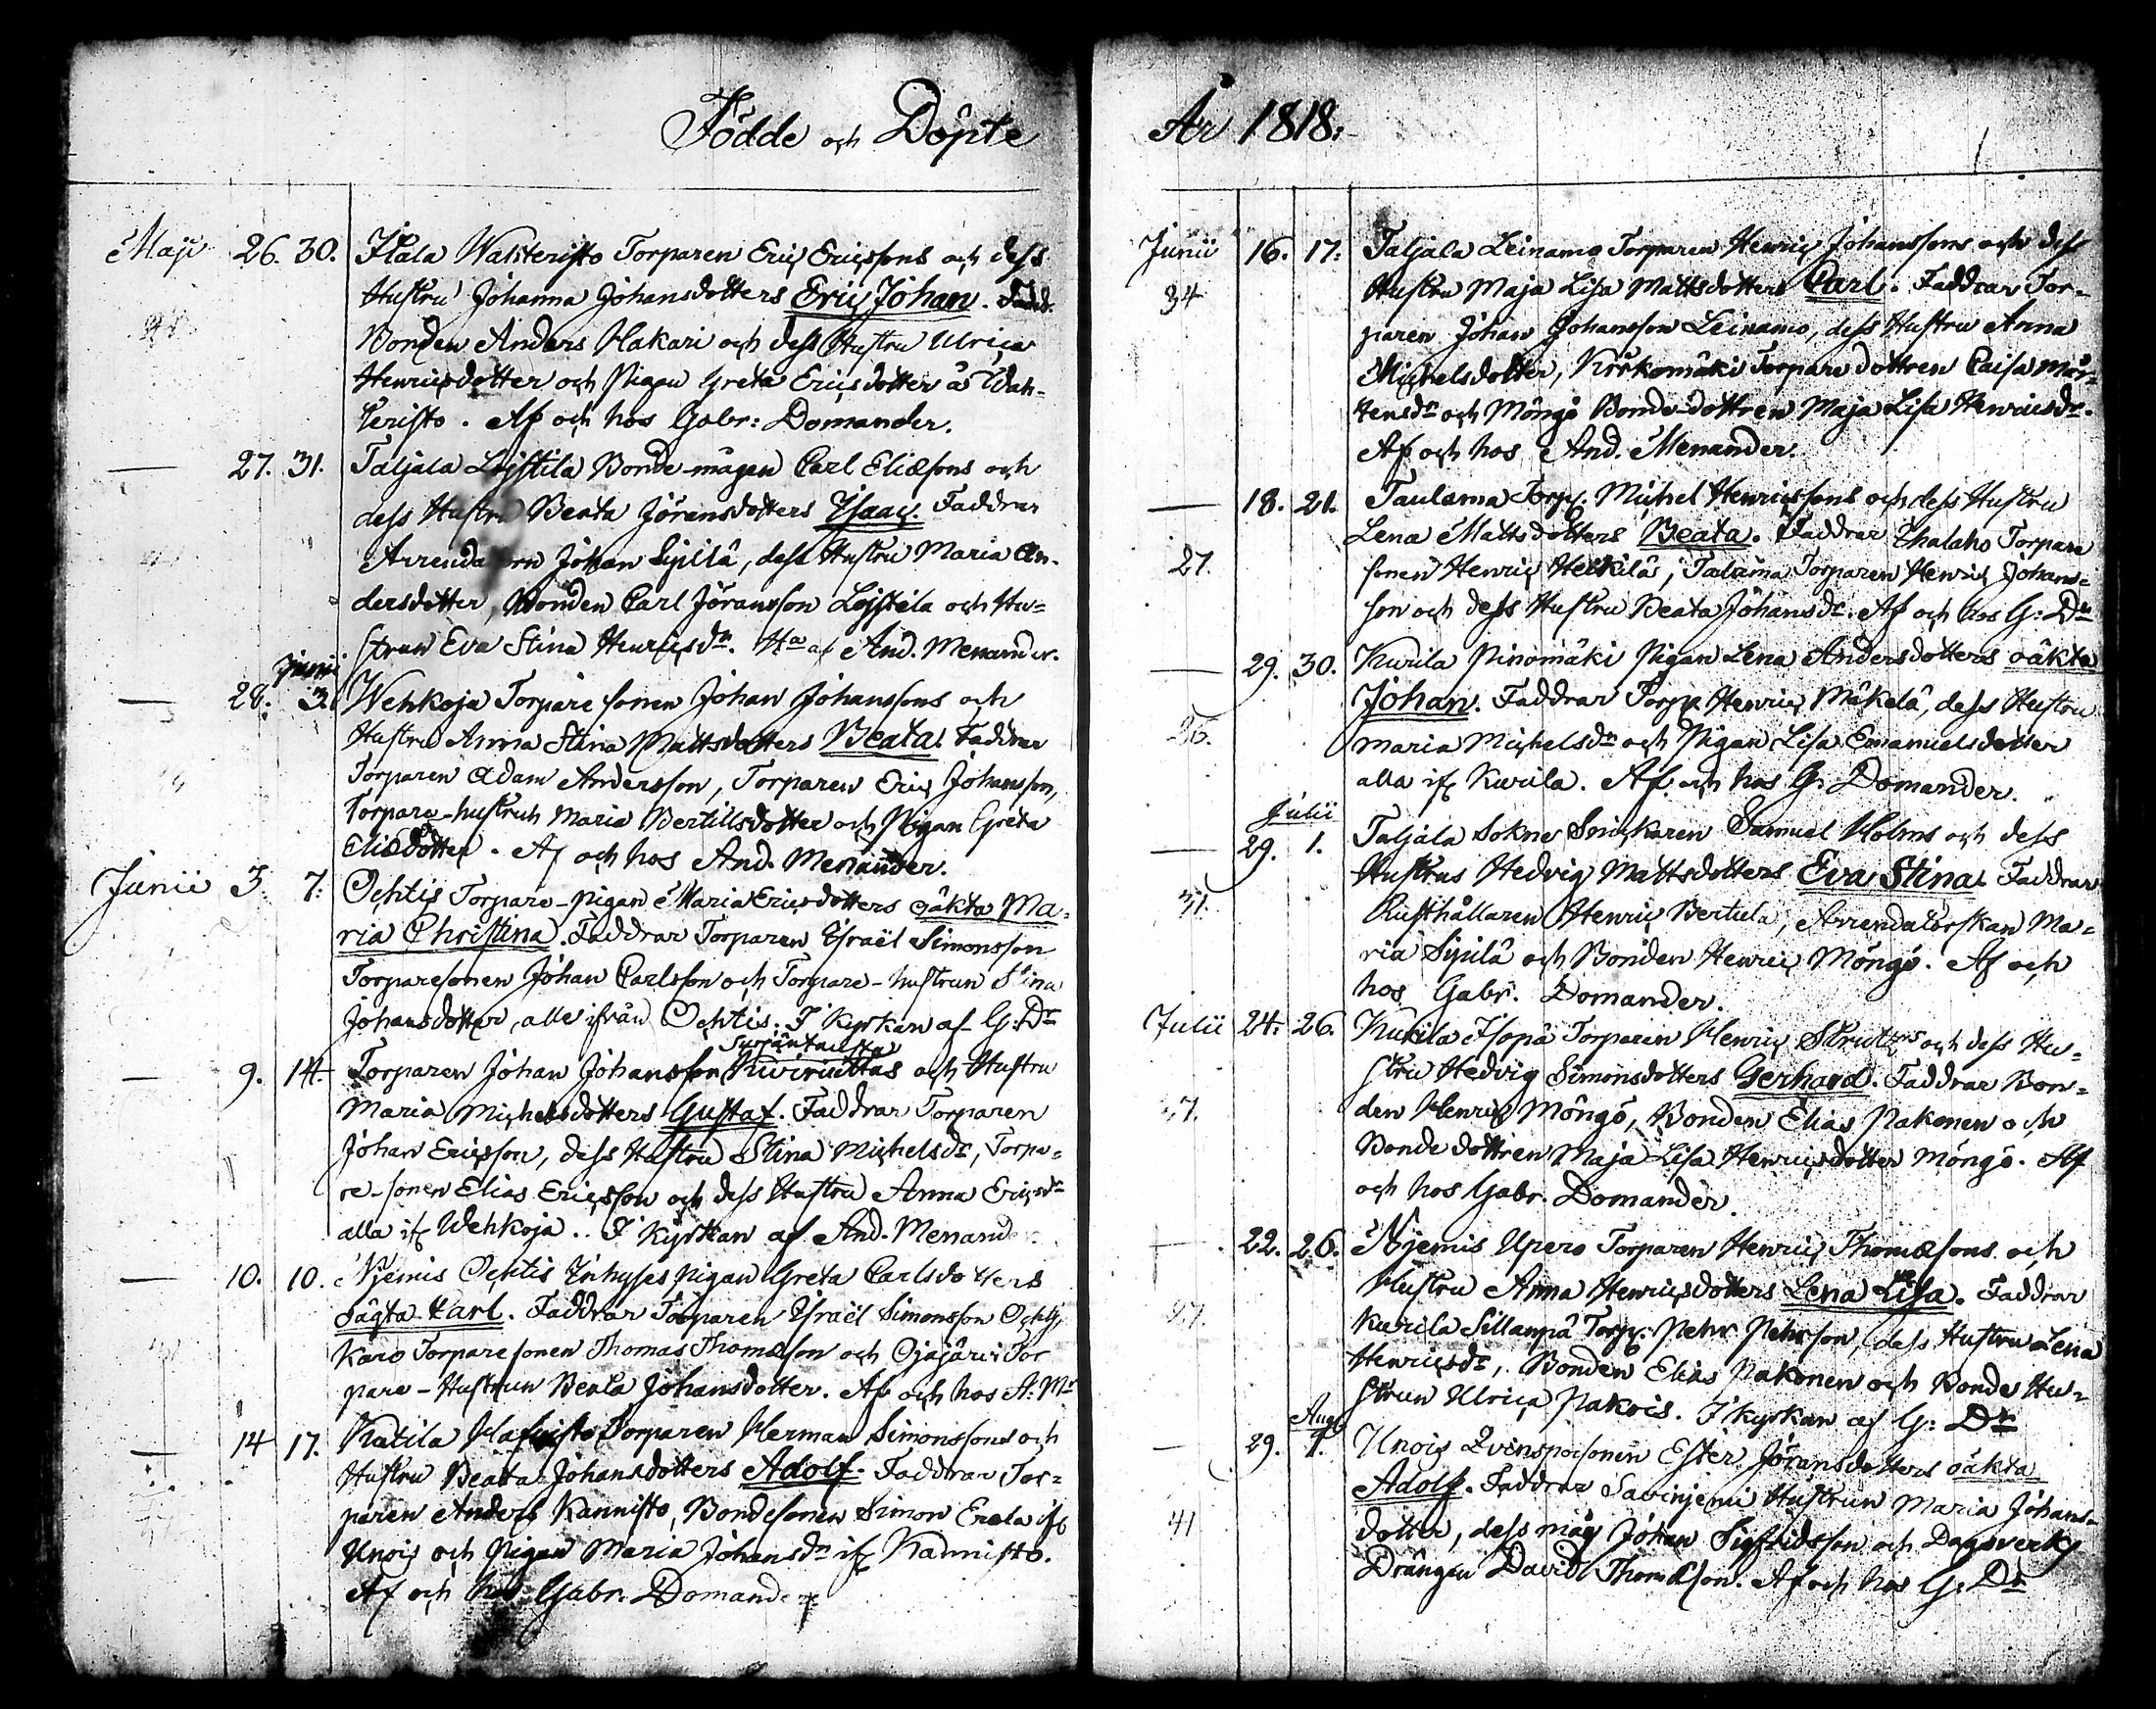 Födde och Döpte
Maji 26. 30. Flala Wahteristo Torparen Eric Ericssons och dess
Hustru Johanna Johansdotters Eric Johan. Fadd.
Bonden Anders Hakari och dess Hustru Ulrica
Henricsdotter och Pigan Greta Ericsdotter å Wah-
teristo. Af och hos Gabr: Domander.
— 27. 31. Taljala Lojstila Bonde-mågen Carl Eliæsons och
dess Hustru Beata Jöransdotters Isaac. Faddrar
Arrendatorn Johan Sipilä, dess Hustru Maria An-
dersdotter, Bonden Carl Jöransson Lojstila och Hu-
strun Eva Stina Henricsdr. And. Menander.
Junii
— 28. 3. Wehkoja Torpare sonen Johan Johanssons och
Hustru Anna Stina Mattsdotters Beata. Faddrar
Torparen Adam Andersson, Torparen Eric Johansson,
Torpare-hustrun Maria Bertillsdotter och Pigan Greta
Eliædotter. Af och hos And. Menander.
Junii 3. 7. Ochtis Torpare-pigan Maria Ericsdotters oäkta Ma-
ria Christina. Faddrar Torparen Israël Simonsson
Torparesonen Johan Carlsson och Torpare-hustrun Stina
Johansdotter, alle ifrån Ochtis. I Kyrkan af G: Dr
— 9. 14. Torparen Johan Johansson Kivirinttas och Hustru
Maria Michelsdotters Gustaf. Faddrar Torparen
Johan Ericsson, dess Hustru Stina Michelsdr, Torpa-
re-sonen Elias Ericsson och dess Hustru Anna Ericsdr
alla if Wehkoja. I Kyrkan af And. Menander.
— 10. 10. Njemis Ochtis Inhyses pigan Greta Carlsdotters
oägta Carl. Faddrar Torparen Israël Simonsson
Karo Torparesonen Thomas Thomæson och Ojajärvi Tor
pare-Hustrun Beata Johansdotter. Af och hos A: Mr
— 14 17. Katila Torparen Herman Simonssons och
Hustru Beata Johansdotters Adolf. Faddrar Tor-
paren Anders Kannisto, Bondesonen Simon Erola if
Unois och Pigan Maria Johansdr if Kannisto.
Af och hos Gabr. Domander.
År 1818.
Junii 16. 17. Taljala Leinamo Torparen Henric Johanssons och dess
34 Hustru Maja Lisa Mattsdotters Carl. Faddrar Tor-
paren Johan Johansson Leinamo, dess Hustru Anna
Michelsdotter, Körkomäki Torparedottren Caisa Mår-
tensdr och Möngö Bonde-dottren Maja Lisa Henricsdr.
Af och hos And. Menander.
— 18. 21. Taulama Torp. Michel Henricssons och dess Hustru
Lena Mattsdotters Beata. Faddrar Torpare
27. sonen Henric Heikilä, Talama Torparen Henric Johans-
son och dess Hustru Beata Johansdr. Af och hos G: Dr
— 29. 30. Kurila Pinomäki Pigan Lena Andersdotters oäkta
Johan. Faddrar Torp. Henric Mäkelä, dess Hustru
26. Maria Michelsdr och Pigan Lisa Emanuelsdotter
alla if Kurila. Af och hos G. Domander.
Julii
— 29. 1. Taljala Sokne Snickaren Samuel Holms och dess
Hustrus Hedvig Mattsdotters Eva Stina. Faddrar
31. Rusthållaren Henric Bertula, Arrendatorskan Ma-
ria Sipilä och Bonden Henric Möngö. Af och
hos Gabr. Domander.
Julii 24. 26. Kukila Isopä Torparen Henric och dess Hu-
stru Hedvig Simonsdotters Gerhard. Faddrar Bon-
27. den Henric Möngö, Bonden Elias Pakonen och
Bonde dottren Maja Lisa Henricsdotter Möngö. Af
och hos Gabr. Domander.
— 22. 26. Njemis Upero Torparen Henric Thomæsons och
Hustru Anna Henricsdotters Lena Lisa. Faddrar
27. Kurila Sillanpä Torp. Pehr Pehrsson, dess Hustru Lena
Henricsdr, Bonden Elias Pakonen och Bonde Hu-
strun Ulrica Pakois. I kyrkan af G: Dr
Aug.
— 29. 1. Unois Qvinspersonen Ester Jöransdotters oäkta
Adolf. Faddrar Savinjemi Hustrun Maria Johans-
41 dotter, dess måg Johan Sigfridsson och Dagsverks
Drängen David Thomæson. Af och hos G: Dr